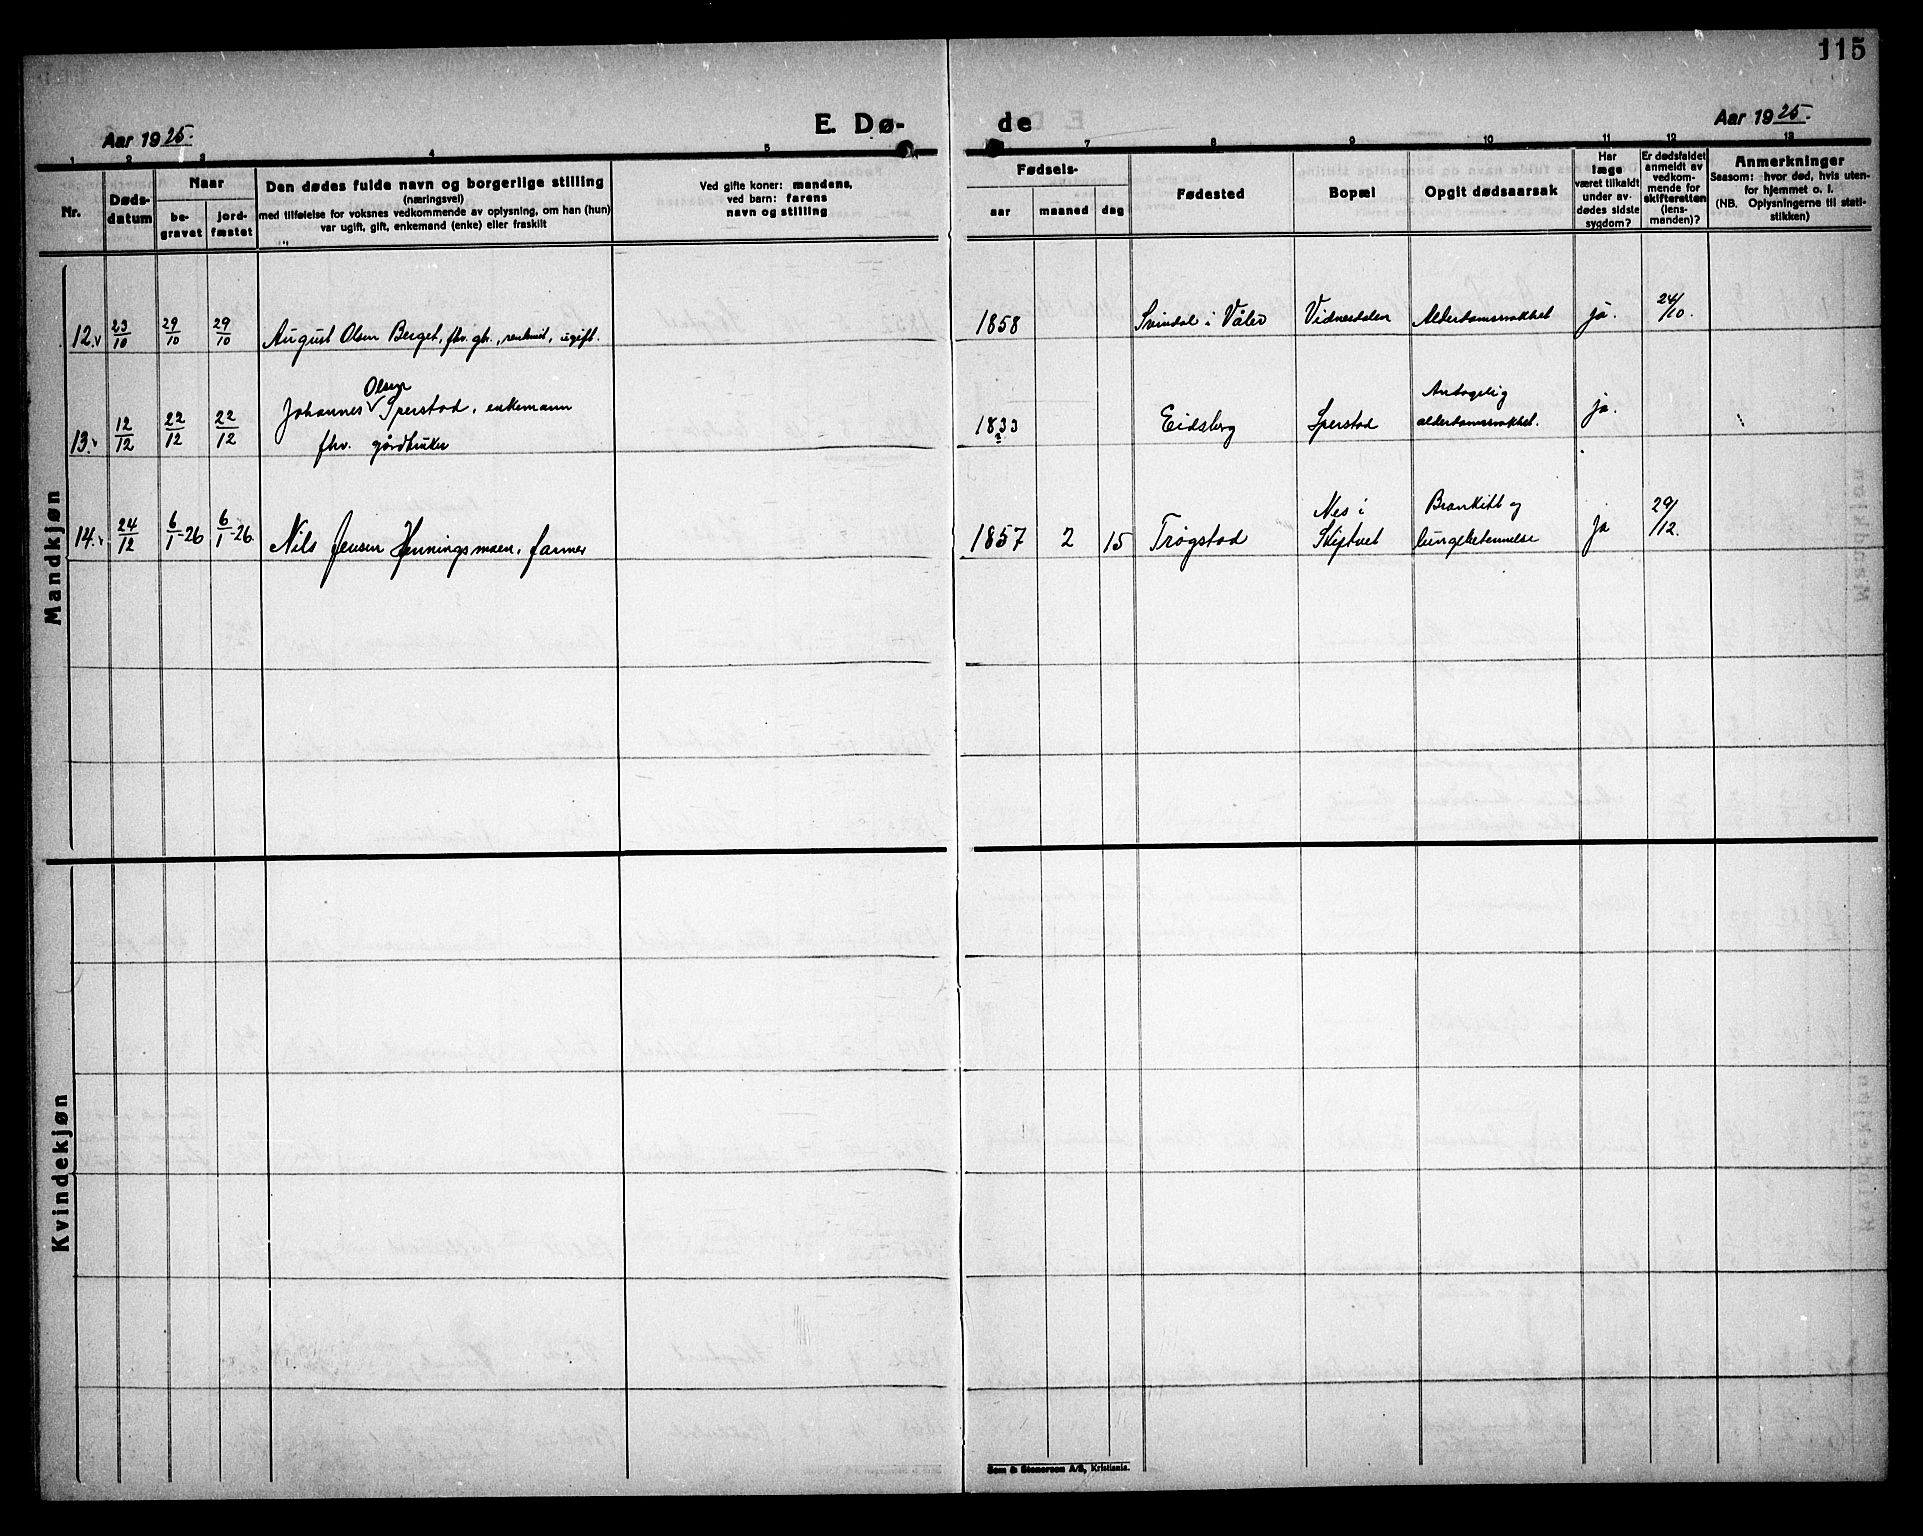 115
Aar 1925.
E. Dø-
de
Aar 1925.
1 2 3 4 5 7 8 9 10 11 12 13
Nr.
Døds-
datum
Naar
be-
gravet
jord-
fæstet
Den dødes fulde navn og borgerlige stilling
(næringsvei)
med tilføielse for voksnes vedkommende av oplysning, om han (hun)
var ugift, gift, enkemand (enke) eller fraskilt
Ved gifte koner: mandens,
ved barn: farens
navn og stilling
Fødsels-
aar
maaned
dag
Fødested
Bopæl
Opgit dødsaarsak
Har
læge
været tilkaldt
under av-
dødes sidste
sygdom?
Er dødsfaldet
anmeldt av
vedkom-
mende for
skifteretten
(lens-
manden)?
Anmerkninger
Saasom: hvor død, hvis uten-
for hjemmet o. l.
(NB. Oplysningerne til stati-
stikken)
Mandkjøn
12. v 23/10 29/10 29/10 August Olsen Berget, fhv. gb., ugift. 1858 Svindal i Våler Vidnesdalen Alderdomssvakhet ja. 24/10.
13. v 12/12 22/12 22/12 Johannes Olsen Sperstad, enkemann
fhv. gårdbruker 1833 Eidsberg Sperstad Antagelig
alderdomssvakhet. ja.
14. v 24/12 6/1-26 6/1-26. Nils Jensen Henningsmoen, farmer 1857 2 15 Trøgstad Nes i
Skiptvet Bronkitt og
lungebetennelse ja 29/12.
Kvindekjøn
Sem & Stenersen A/S, Kristiania.